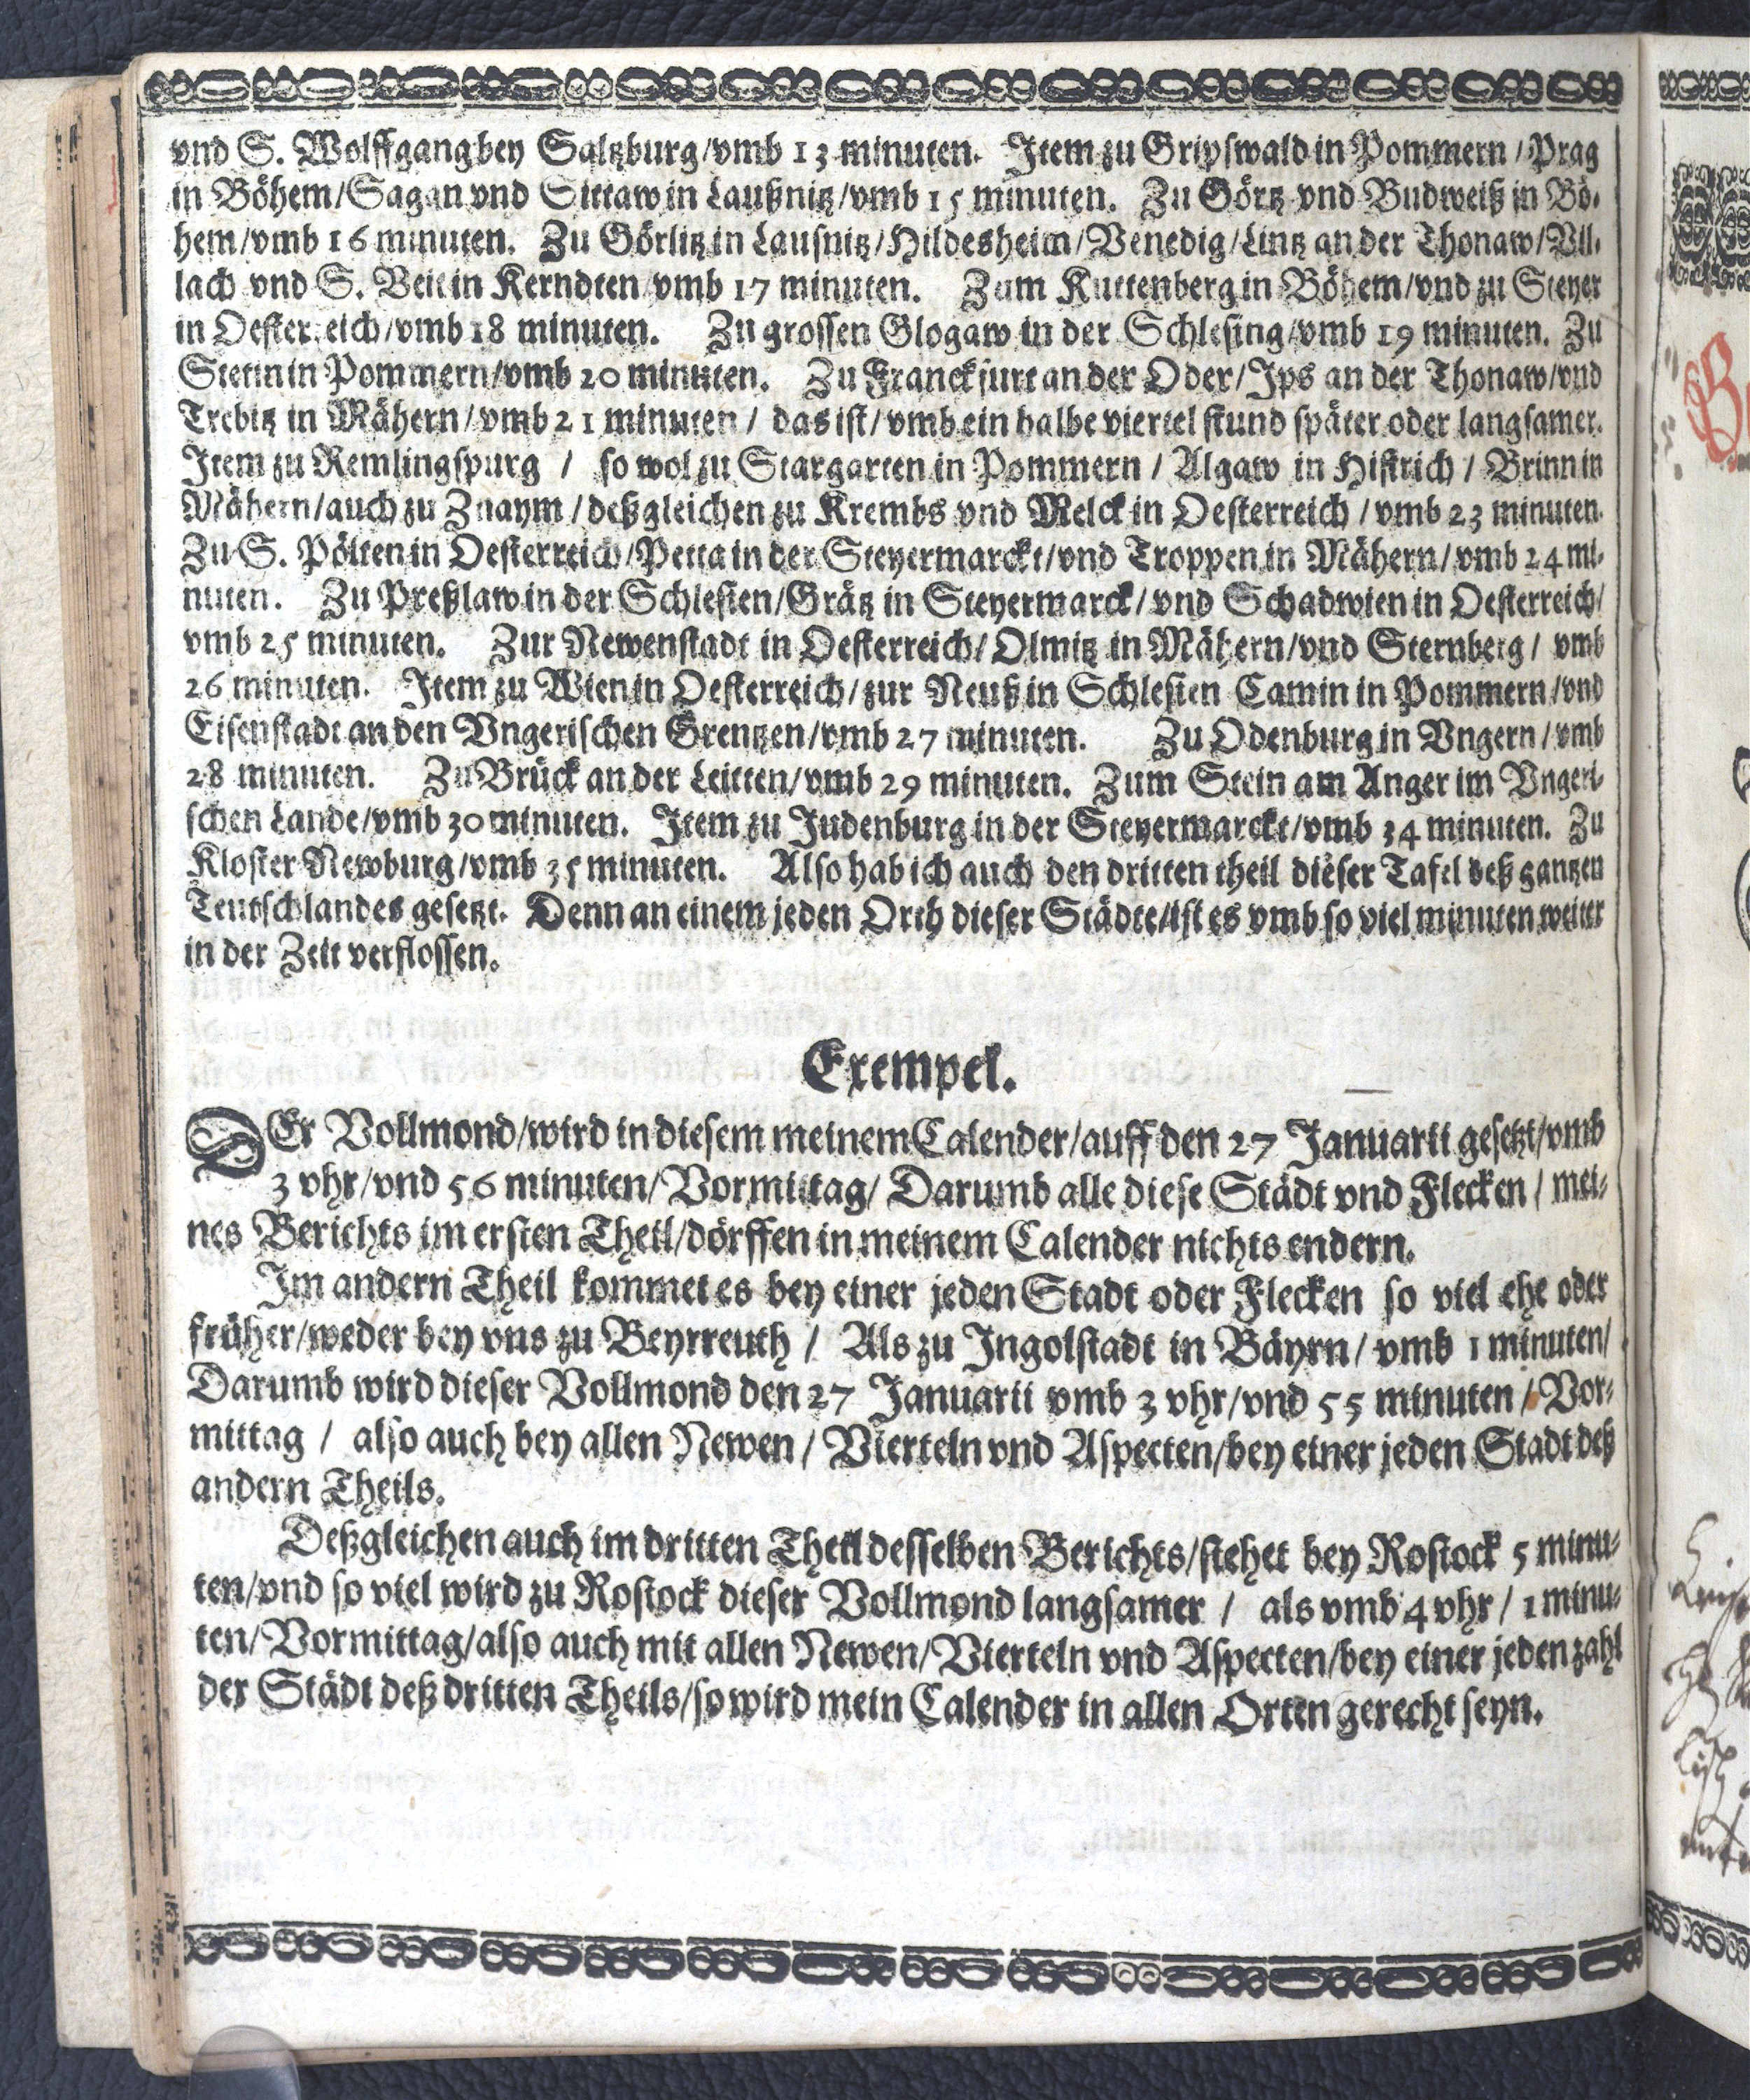 vnd S. Wolffgang bey Saltzburg/vmb 13 minuten. Item zu Gripswald in Pommern / Prag
in Böhem/Sagan vnd Sittaw in Laußnitz/vmb 15 minuten. Zu Görtz vnd Budweiß in Bö-
hem/vmb 16 minuten. Zu Görlitz in Lausnitz/Hildesheim/Venedig/Lintz an der Thonaw/Vll-
lach vnd S. Veit in Kerndten/vmb 17 minuten. Zum Kuttenberg in Böhem/vnd zu Steyer
in Oesterreich/vmb 18 minuten. Zu grossen Glogaw in der Schlesing/vmb 19 minuten. Zu
Stetin in Pommern/vmb 20 minuten. Zu Franckfurt an der Oder/Ips an der Thonaw/vnd
Trebitz in Mähern/vmb 21 minuten / das ist/vmb ein halbe viertel stund später oder langsamer.
Item zu Remlingspurg / so wol zu Stargarten in Pommern / Algaw in Histrich / Brinn in
Mähern/auch zu Znaym / deßgleichen zu Krembs vnd Melck in Oesterreich / vmb 23 minuten.
Zu S. Pölten in Oesterreich/Petta in der Steyermarckt/vnd Troppen in Mähern/vmb 24 mi-
nuten. Zu Preßlaw in der Schlesien/Grätz in Steyermarck/vnd Schadwien in Oesterreich/
vmb 25 minuten. Zur Newenstadt in Oesterreich/Olmitz in Mähern/vnd Sternberg / vmb
26 minuten. Item zu Wien in Oesterreich/zur Neuß in Schlesien Camin in Pommern/vnd
Eisenstadt an den Vngerischen Grentzen/vmb 27 minuten. Zu Odenburg in Vngern / vmb
28 minuten. Zu Brück an der Leitten/vmb 29 minuten. Zum Stein am Anger im Vngeri-
schen Lande/vmb 30 minuten. Item zu Judenburg in der Steyermarckt/vmb 34 minuten. Zu
Kloster Newburg/vmb 35 minuten. Also hab ich auch den dritten theil dieser Tafel deß gantzen
Teutschlandes gesetzt. Denn an einem jeden Orth dieser Städte/ist es vmb so viel minuten weiter
in der Zeit verflossen.
Exempel.
DEr Vollmond/wird in diesem meinem Calender/auff den 27 Januarii gesetzt/vmb
3 vhr/vnd 56 minuten/Vormittag/ Darumb alle diese Städt vnd Flecken / mei-
nes Berichts im ersten Theil/dörffen in meinem Calender nichts endern.
Im andern Theil kommet es bey einer jeden Stadt oder Flecken so viel ehe oder
früher/weder bey vns zu Beyrreuth / Als zu Ingolstadt in Bäyrn/ vmb 1 minuten/
Darumb wird dieser Vollmond den 27 Januarii vmb 3 vhr/vnd 55 minuten / Vor-
mittag / also auch bey allen Newen / Vierteln vnd Aspecten/bey einer jeden Stadt deß
andern Theils.
Deßgleichen auch im dritten Theil desselben Berichts/stehet bey Rostock 5 minu-
ten/vnd so viel wird zu Rostock dieser Vollmond langsamer / als vmb 4 vhr / 1 minu-
ten/Vormittag/also auch mit allen Newen/Vierteln vnd Aspecten/bey einer jeden zahl
der Städt deß dritten Theils/so wird mein Calender in allen Orten gerecht seyn.